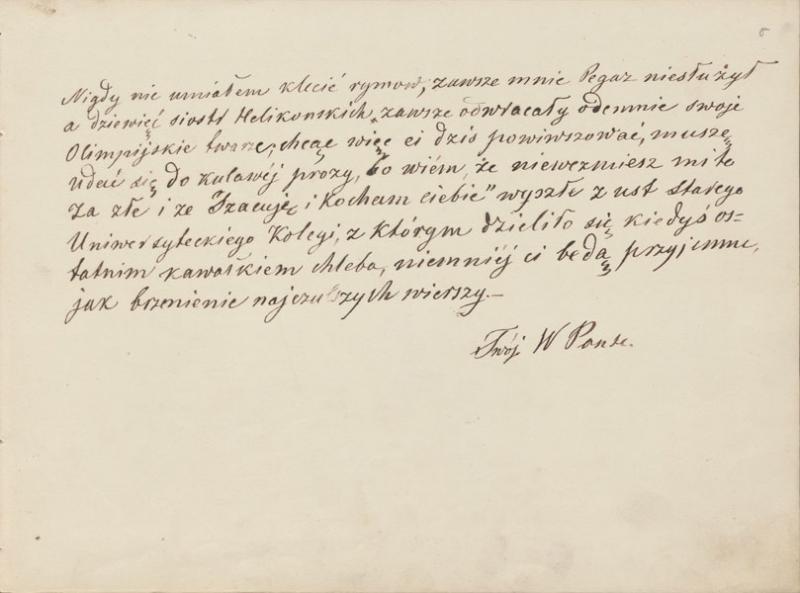 8
Nigdy nie umiałem klecić rymow, zawsze mnie Pegaz niesłużył
a dziewięć siostr Helikonskich zawsze odwracały odemnie swoje
Olimpijskie twarze; chcąc więc ci dziś powinszować, muszę
udać się do kulawéj prozy, bo wiém, że niewezmiesz mi to
za złe i że "Szacuję i Kocham ciebie" wyszłe z ust Starego
Uniwersyteckiego Kolegi, z którym dzieliło się kiedyś os=
tatnim kawałkiem chleba, niemniéj ci będą przyjemne,
jak brzmienie najczulszych wierszy.—
Twój W